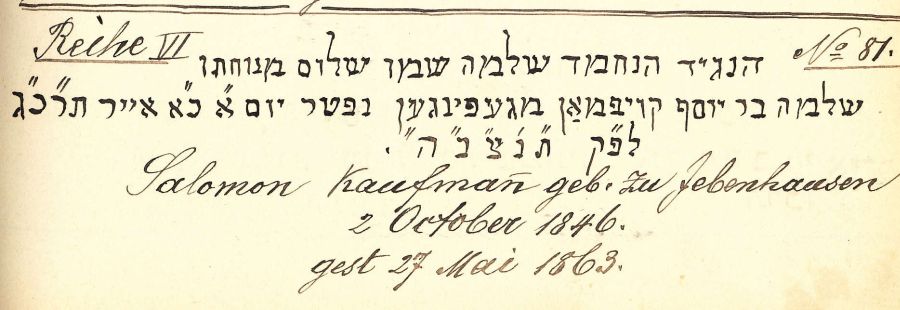 Reihe VI
No 81.
הנגיד הנחמד שלמה שמו שלום מנוחתו
שלמה בר יוסף קויפמאַן מגעפינגען נפטר יום א״ כ״א אייר תר״כ״ג
לפ״ק ת״נ״צ״ב״ה״.
Salomon Kaufmañ geb. zu Jebenhausen
2 October 1846.
gest 27 Mai 1863.